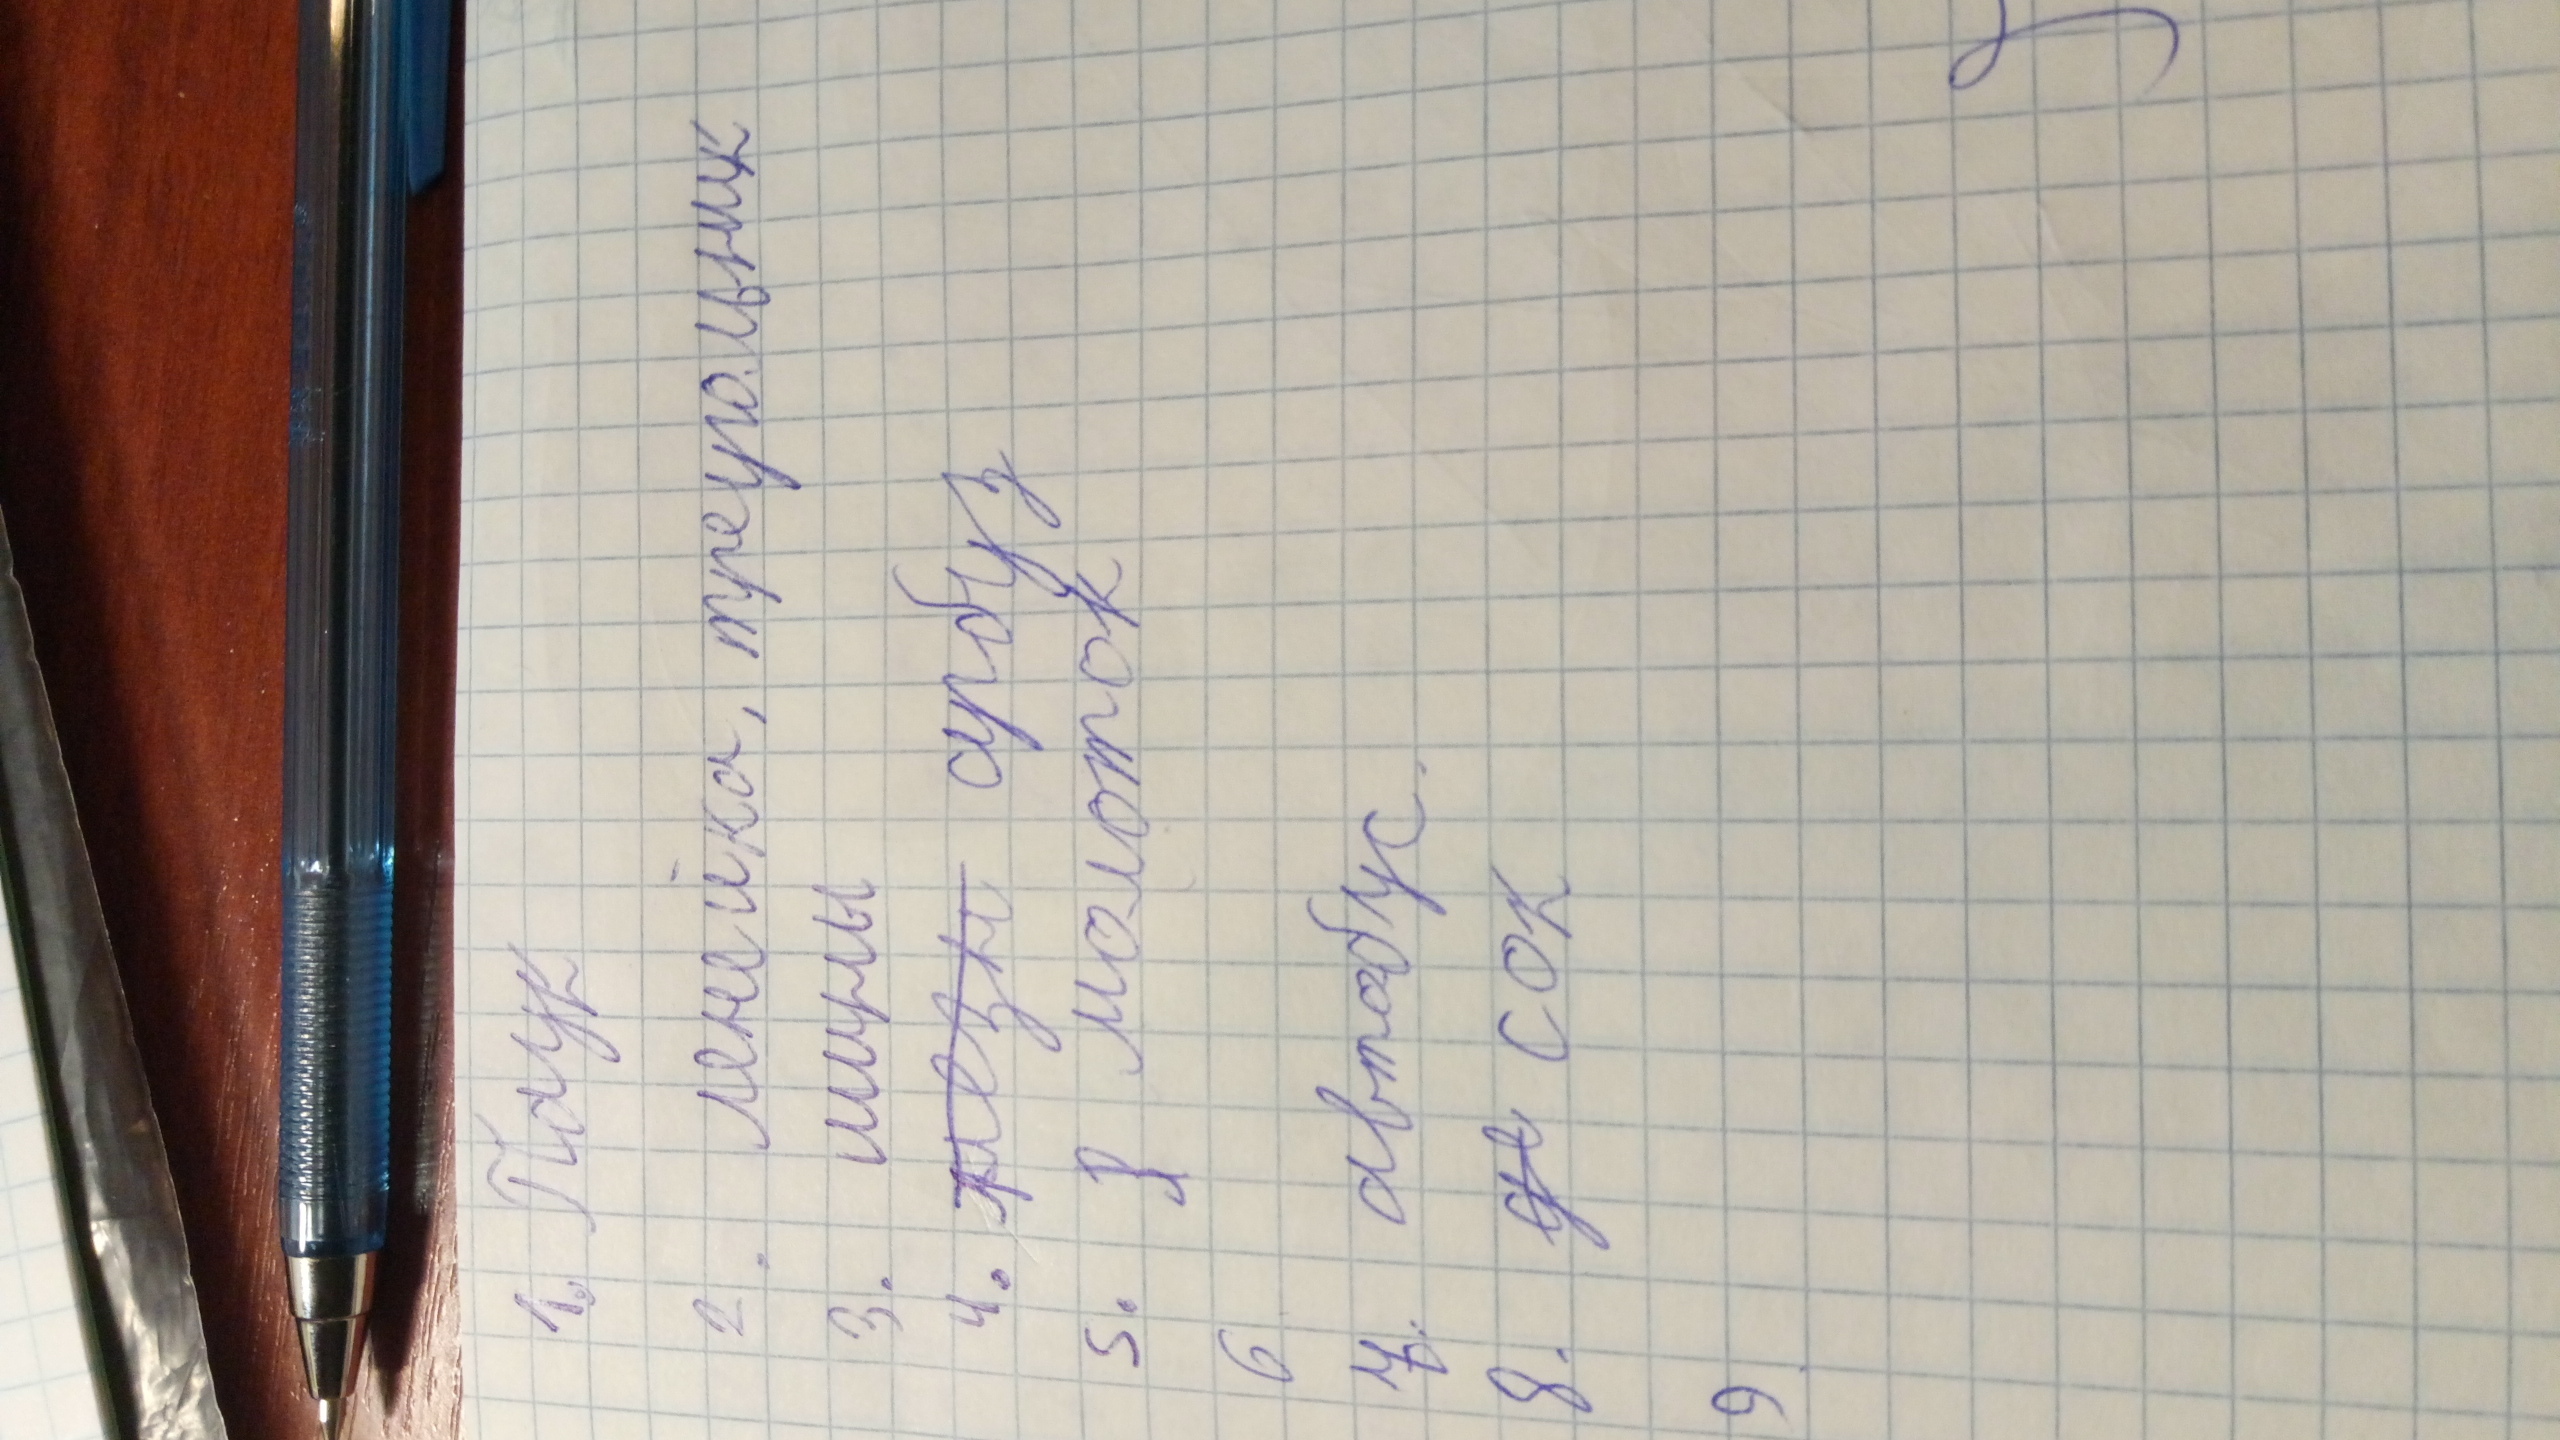 1. Паук
2. линейка, треугольник
3. шары
4. арбуз
5. молоток
6
7. автобус.
8. сок
9